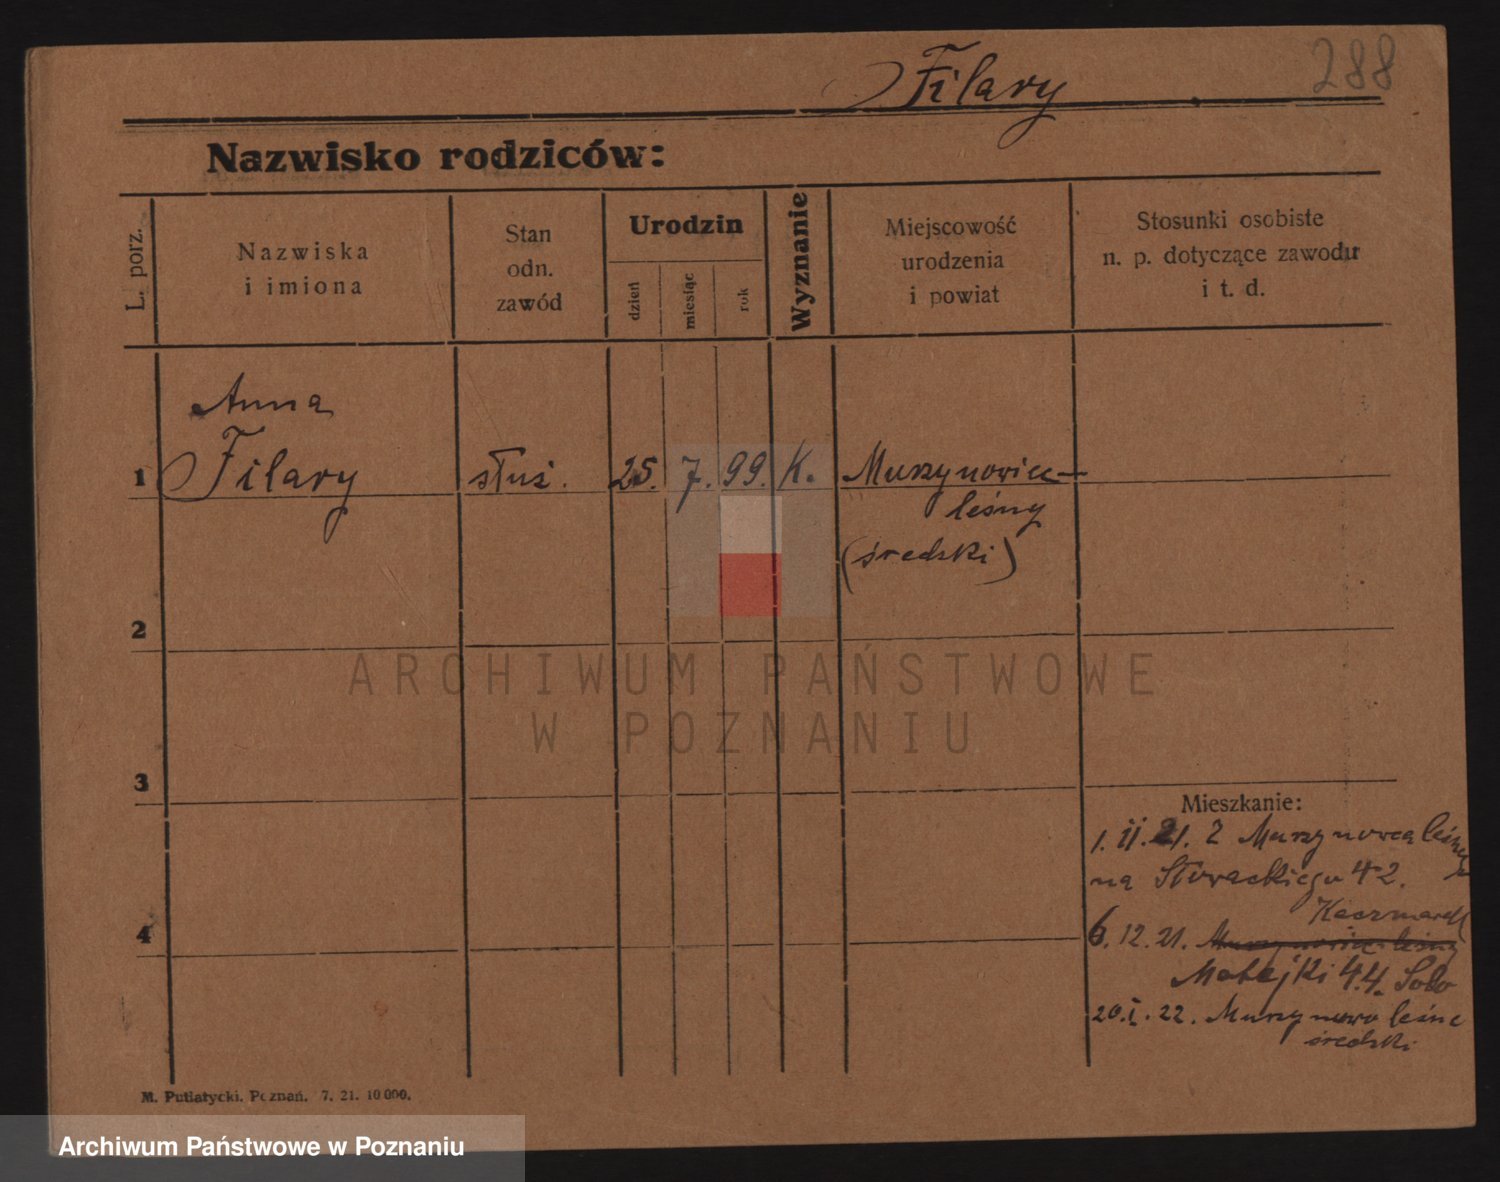 Filary 288
Nazwisko rodziców:
L. porz.
Nazwiska
i imiona
Stan
odn.
zawód
Urodzin
dzień
miesiąc
rok
Wyznanie
Miejscowość
urodzenia
i powiat
Stosunki osobiste
n. p. dotyczące zawodu
i t. d.
Anna
1 Filary służ. 25. 7. 99. K. Murzynowiec
leśny
(średzki)
2
ARCHIWUM PAŃSTWOWE
W POZNANIU
3
Mieszkanie:
1. II. 21. Z Murzynowca
na Słowackiego 42.
Kaczmarek
4
6. 12. 21.
Matejki 44.
20. I. 22. Murzynowo leśne
średzki
M. Putiatycki. Poznań. 7. 21. 10 000.
Archiwum Państwowe w Poznaniu